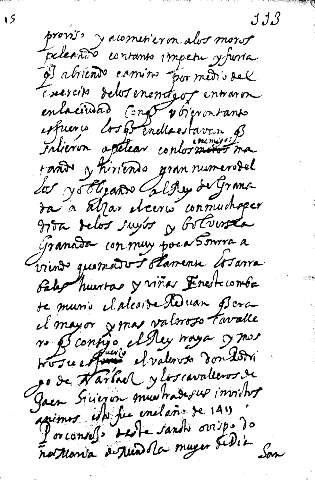 15 333
proviso y acometieron a los moros
peleando con tanto impetu y furia
q abriendo camino por medio del
exercito de los enemigos entraron
en la ciudad Con q pusieron tanto
esfuerço los q en ella estavan q
salieron a pelear con los enemigos ma
tando y hiriendo gran numero del
los y obligando al Rey de Grana
da a alzar el cerco con mucha per
dida de los suyos y bolverse a
Granada con muy poca honrra a
viendo quemado solamente los arra
bales huertas y viñas En este comba
te murio el alcaide Reduan q era
el mayor y mas valeroso cavalle
ro q consigo el Rey traya y mos
tro su esfuerço el valeroso don Rodri
go de Narbaez y los cavalleros de
Jaen hicieron muestra de sus invictos
animos esto fue en el año de 1411
Por consejo deste santo obispo do
na Maria de Mendoza muger de Die
San